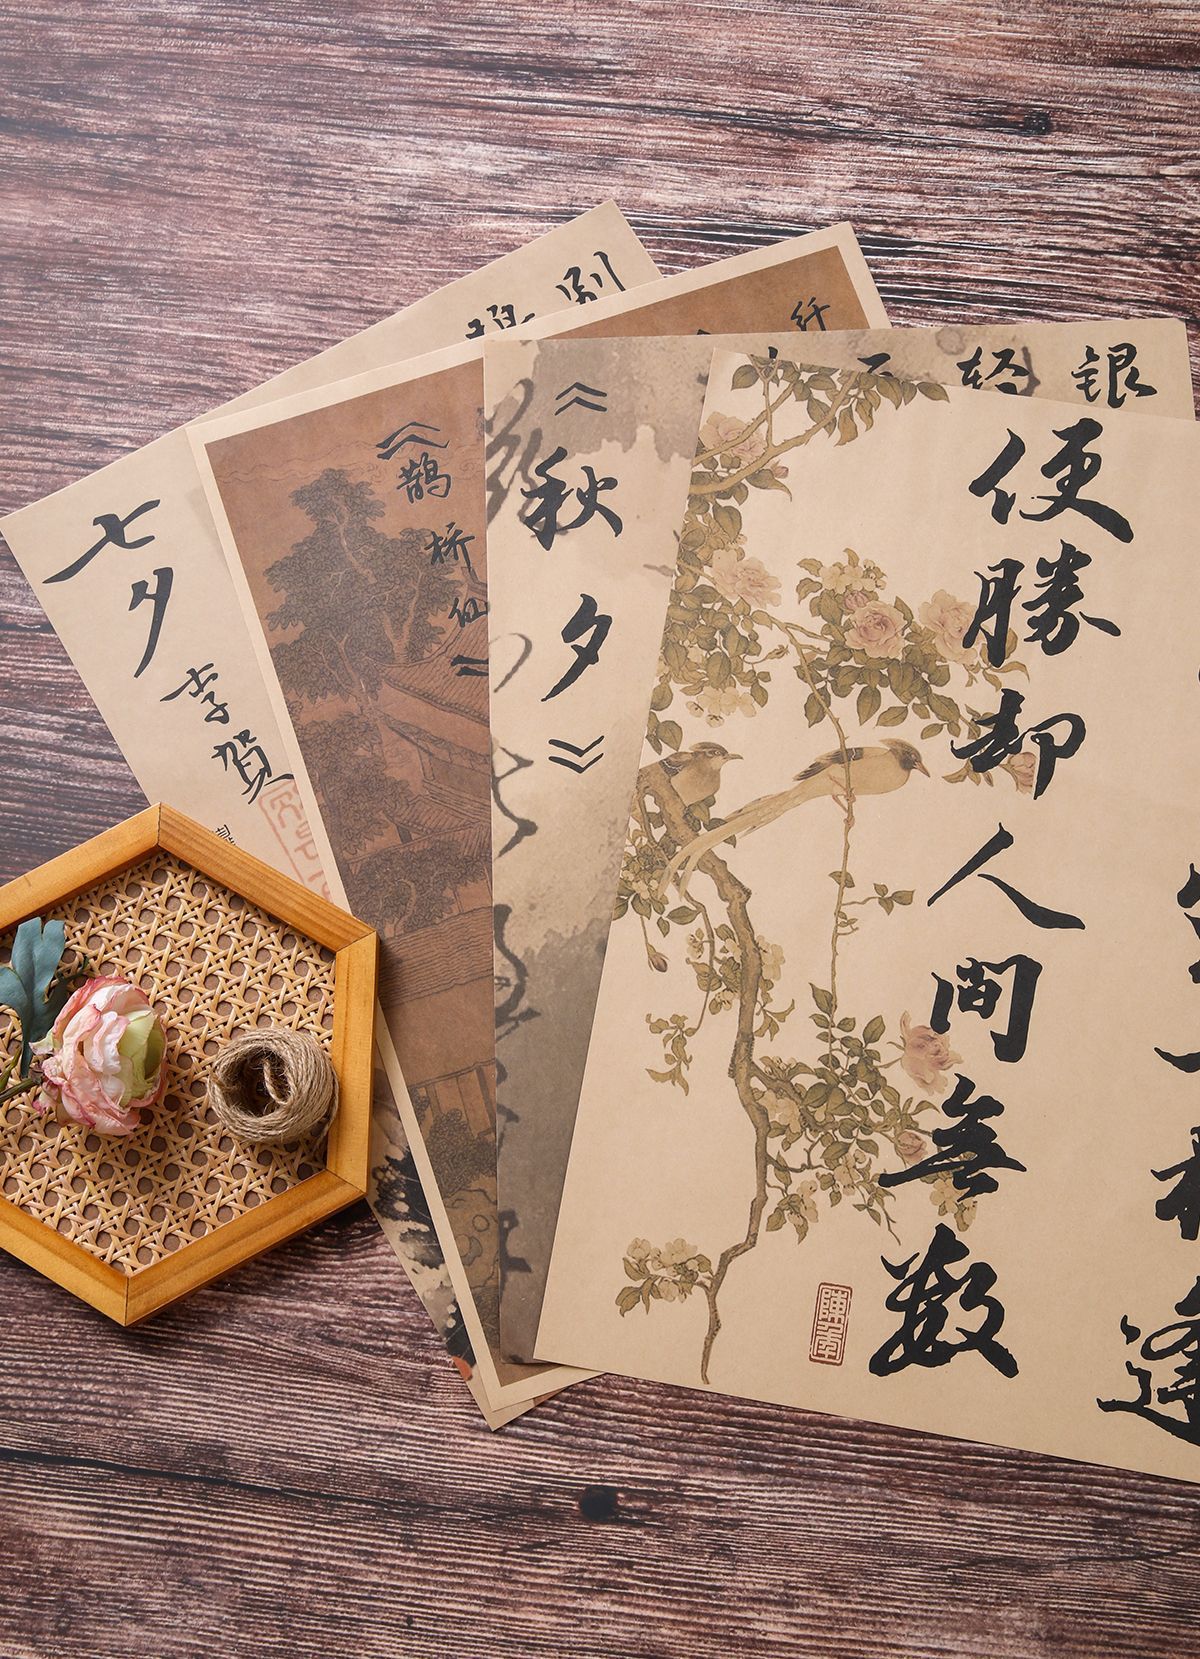 别
七夕
李贺
纤
《鹊桥仙》
银
轻
《秋夕》
逢
便勝却人間無數